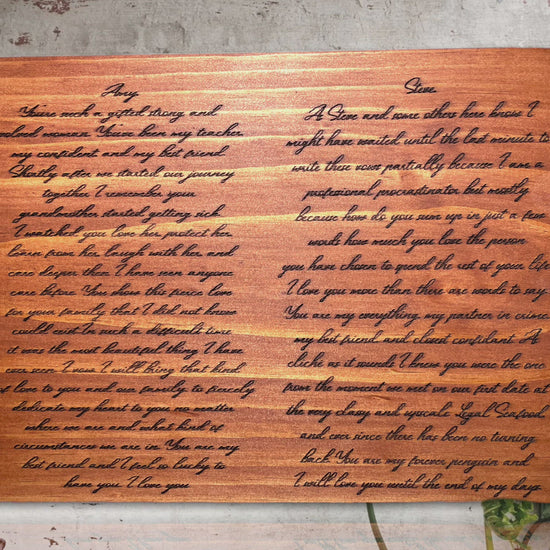 Amy
You're such a gifted strong and
oled woman You've been my teacher
my confident and my best friend
Shortly after we started our journey
together I remember your
grandmother started getting sick
I watched you love her protect her
learn from her laugh with her and
care deeper then I have seen anyone
care before You share this fierce love
for your family that I did not know
could exist In such a difficult time
it was the most beautiful thing I have
ever seen I vow I will bring that kind
of love to you and our family to fiercely
dedicate my heart to you no matter
where we are and what kind of
circumstances we are in You are my
best friend and I feel so lucky to
have you I love you
Steve
A Steve and some others here know I
might have waited until the last minute to
write these vows partially because I am a
professional procrastinator but mostly
because how do you sum up in just a few
words how much you love the person
you have chosen to spend the rest of your life
I love you more than there are words to say
You are my everything my partner in crime
my best friend and closest confidant A
cliche as it sounds I knew you were the one
from the moment we met on our first date at
the very classy and upscale Legal Seafood
and ever since there has been no turning
back You are my forever penguin and
I will love you until the end of my days